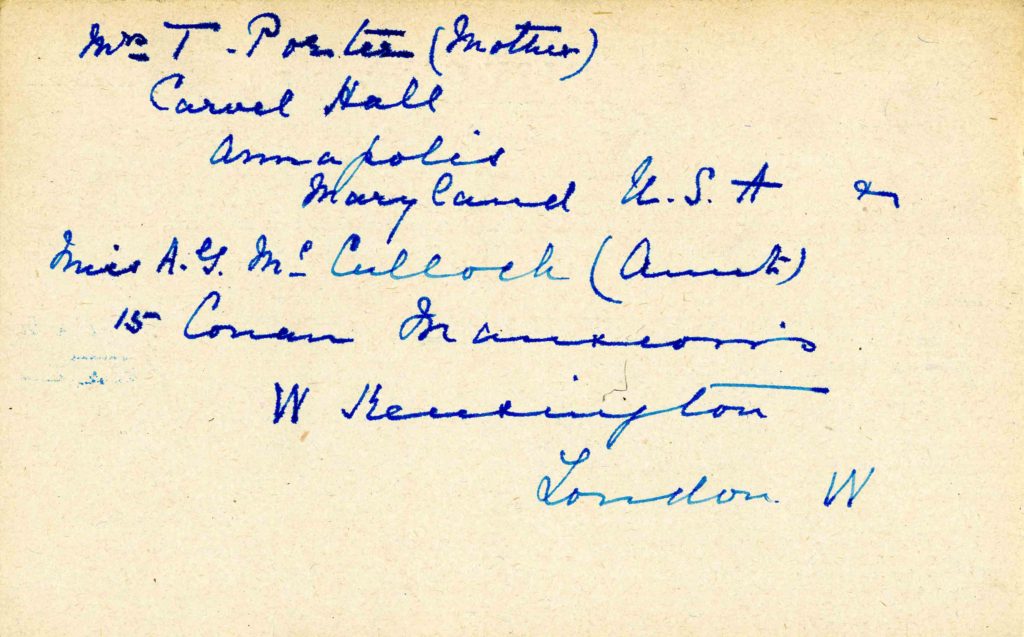 Mrs T. Porter (Mother)
Carvel Hall
Annapolis
Maryland U.S.A &
Miss A.G. Mc Culloch (Aunt)
15 Conan Mansions
W Kensington
London W